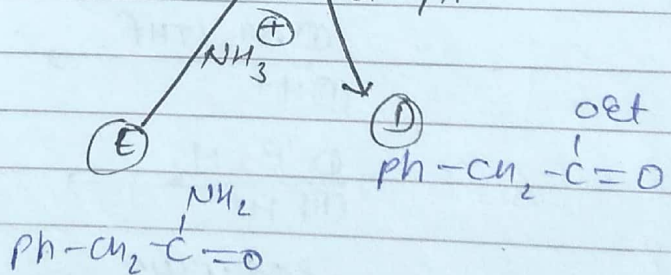 ⊕
NH3
E
D
OEt
Ph-CH2-C=O
NH2
Ph-CH2-C=O